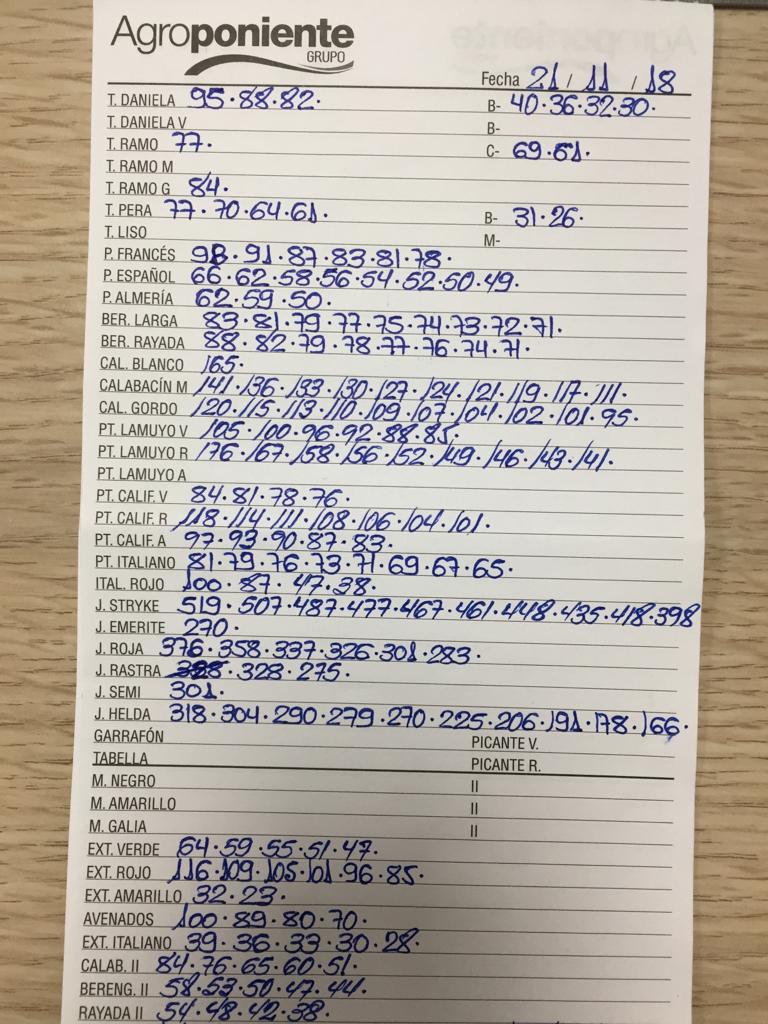 Agroponiente
GRUPO
Fecha 21 / 11 / 18
T. DANELA 95·88·82· B- 40·36·32·30·
T. DANIELA V B-
T. RAMO 77· C- 69·61·
T. RAMO M
T. RAMO G 84·
T. PERA 77·70·64·61· B- 31·26·
T. LISO M-
P. FRANCÉS 98·91·87·83·81·78·
P. ESPAÑOL 66·62·58·56·54·52·50·49·
P. ALMERÍA 62·59·50·
BER. LARGA 83·81·79·77·75·74·73·72·71·
BER. RAYADA 88·82·79·78·77·76·74·71·
CAL. BLANCO 165·
CALABACÍN M 141·136·133·130·127·124·121·119·117·111·
CAL. GORDO 120·115·113·110·109·107·104·102·101·95·
PT. LAMUYO V 105·100·96·92·88·85·
PT. LAMUYO R 176·167·158·156·152·149·146·143·141·
PT. LAMUYO A
PT. CALIF. V 84·81·78·76·
PT. CALIF. R 118·114·111·108·106·104·101·
PT. CALIF. A 97·93·90·87·83·
PT. ITALIANO 81·79·76·73·71·69·67·65·
ITAL. ROJO 100·87·47·38·
J. STRYKE 519·507·487·477·467·461·448·435·418·398
J. EMERITE 270·
J. ROJA 376·358·337·326·301·283·
J. RASTRA 328·275·
J. SEMI 301·
J. HELDA 318·304·290·279·270·225·206·191·178·166·
GARRAFÓN PICANTE V.
TABELLA PICANTE R.
M. NEGRO II
M. AMARILLO II
M. GALIA II
EXT. VERDE 64·59·55·51·47·
EXT. ROJO 116·109·105·101·96·85·
EXT. AMARILLO 32·23·
AVENADOS 100·89·80·70·
EXT. ITALIANO 39·36·33·30·28·
CALAB. II 84·76·65·60·51·
BERENG. II 58·53·50·47·44·
RAYADA II 54·48·42·38·